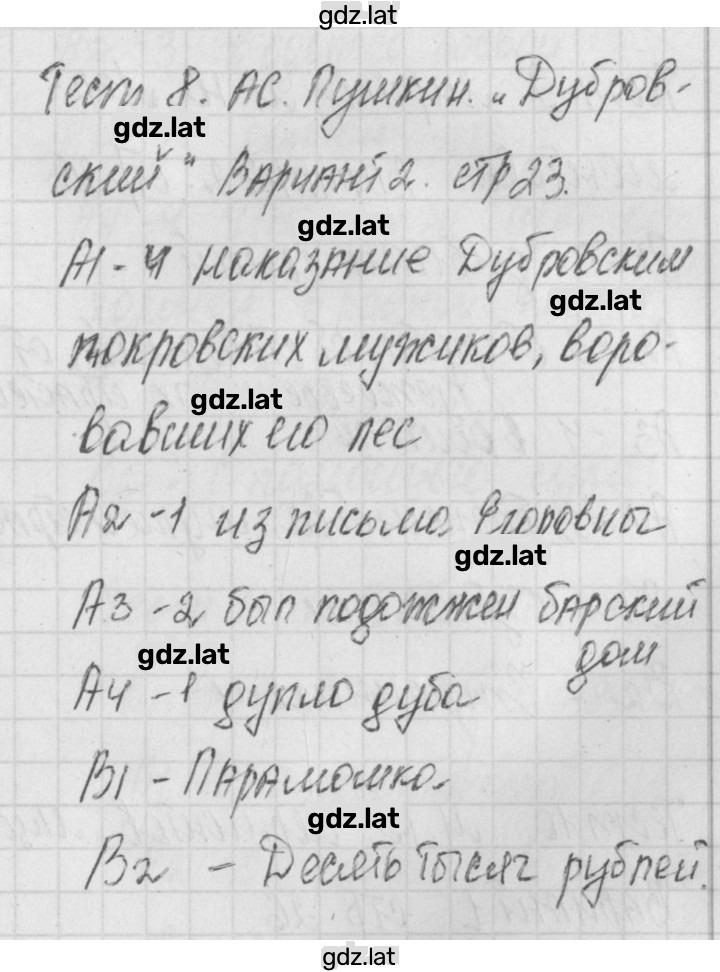 gdz.lat
Тест 8. А.С. Пушкин. „Дубров-
gdz.lat
ский" Вариант 2. стр 23.
gdz.lat
А1 - 4 наказание Дубровским
gdz.lat
покровских мужиков, воро-
gdz.lat
вавших его лес
А2 - 1 из письма Егоровны
gdz.lat
А3 - 2 был подожжен барский
gdz.lat дом
А4 - 1 дупло дуба
В1 - Парамошка.
gdz.lat
В2 - Десять тысяч рублей.
gdz.lat